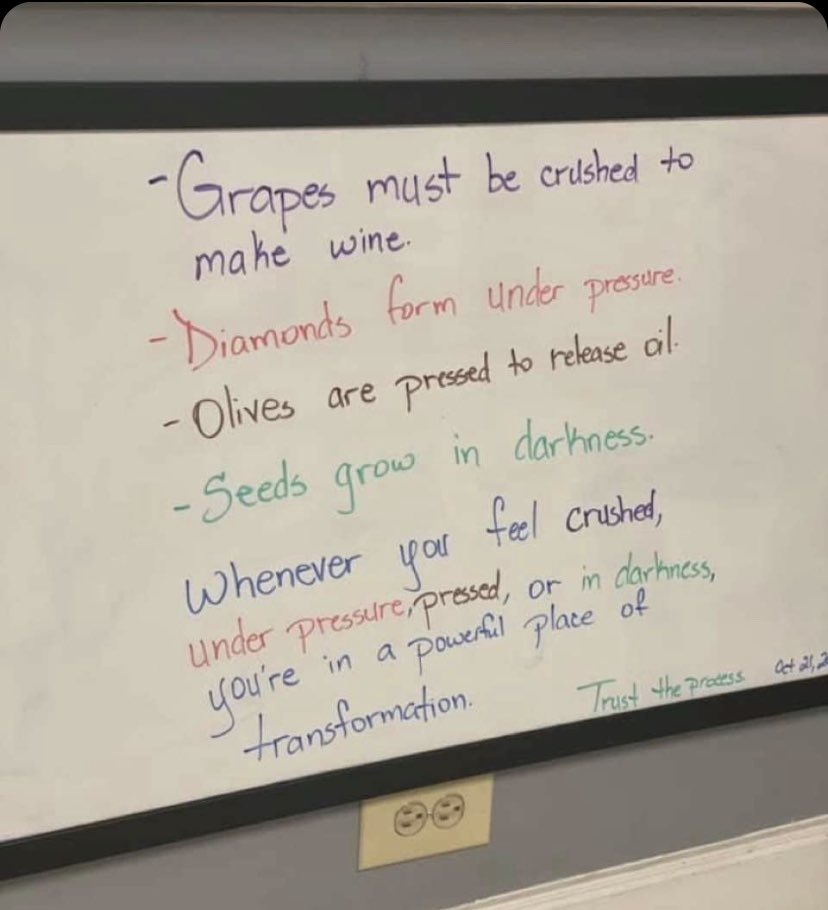 - Grapes must be crushed to
make wine.
- Diamonds form under pressure.
- Olives are pressed to release oil.
- Seeds grow in darkness.
Whenever you feel crushed,
under pressure, pressed, or in darkness,
you're in a powerful place of
transformation.
Trust the process
Oct 21, 2